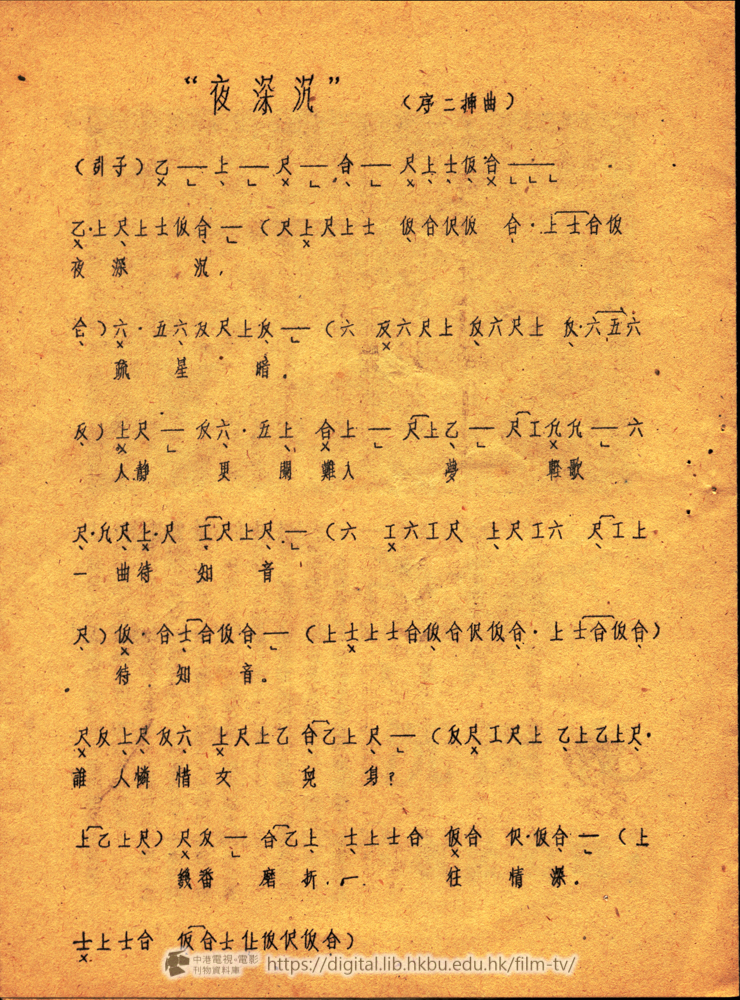 “夜深沉” （序二揷曲）
（引子）乙——上——尺——合——尺上士伬合———
乙·上尺上士伬合—（尺上尺上士 伬合伬伬 合·上士合伬
夜深 沉，
仩）六·五六反尺上反—（六 反六尺上 反六尺上 反·六五六
疏 星 暗。
反）上尺—反六·五上 合上—尺上乙—尺工九九—六
人靜 更闌難入 夢 輕歌
尺·九尺上·尺 工尺上尺—（六 工六工尺 上尺工六 尺工上
一曲待 知 音
尺） 合士合 合—（上士上士合 合 合·上士合 合）
待 知 音。
尺反上尺反六 上尺上乙 合乙上尺—（反尺工尺上 乙上乙上尺·
誰人憐惜女 兒 身？
上乙上尺）尺反—合乙上 士上士合 合 合—（上
幾番 磨折， 往 情 深。
士上士合 合士 ）
中港電視·電影
刊物資料庫
https://digital.lib.hkbu.edu.hk/film-tv/